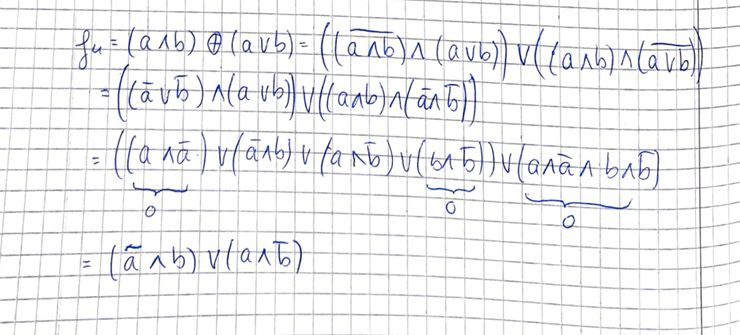 f₄ = (a∧b) ⊕ (a∨b) = ((a̅∧̅b̅) ∧ (a∨b)) ∨ ((a∧b) ∧ (a̅∨̅b̅))
= ((a̅∨b̅) ∧ (a∨b)) ∨ ((a∧b) ∧ (a̅∧b̅))
= ((a∧a̅) ∨ (a̅∧b) ∨ (a∧b̅) ∨ (b∧b̅)) ∨ (a∧a̅∧b∧b̅)
0 0 0
= (a̅∧b) ∨ (a∧b̅)